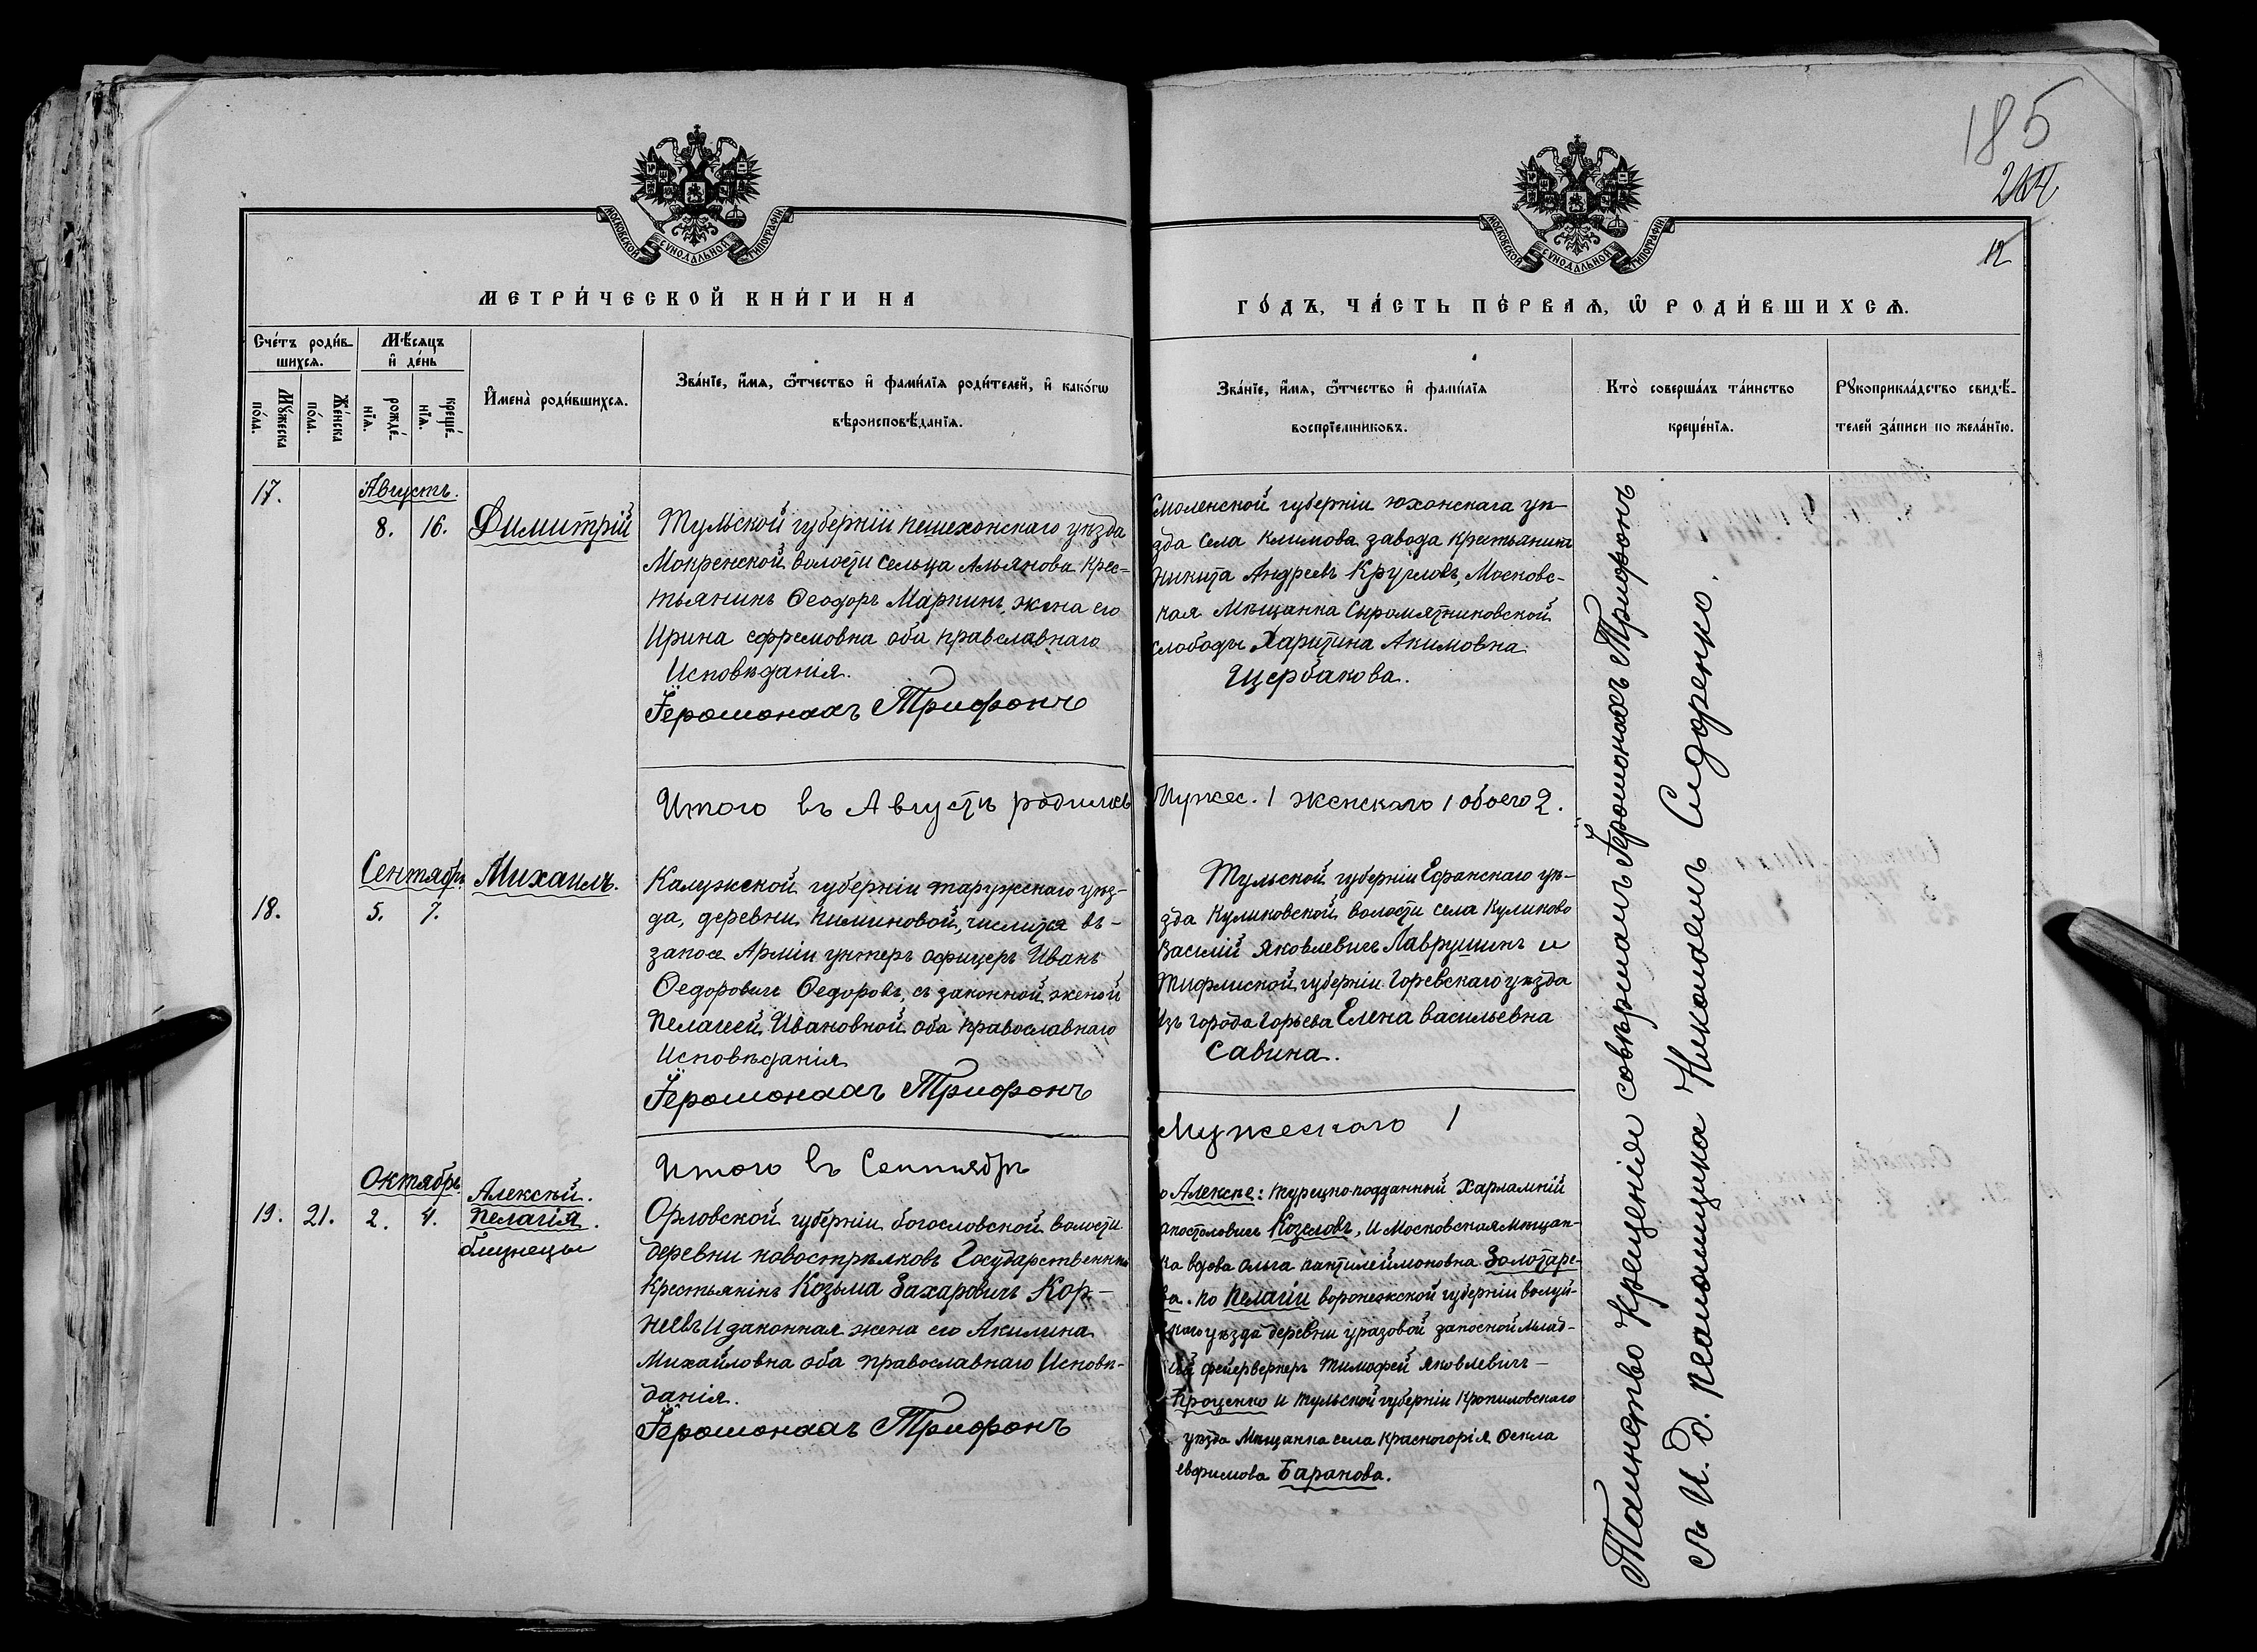 185
12
МОСКОВСКОЙ СѴНОДАЛЬНОЙ ТИПОГРАФІИ
МОСКОВСКОЙ СѴНОДАЛЬНОЙ ТИПОГРАФІИ
МЕТРИ́ЧЕСКОЙ КНИ́ГИ НА
ГО́ДЪ, ЧА́СТЬ ПЕ́РВАѦ, Ѽ РОДИ́ВШИХСѦ.
Сче́тъ роди́в-
шихсѧ.
Мѣ́сяцъ
и҆ де́нь
Мꙋ́жеска
по́ла.
Же́нска
по́ла.
рожде́-
нїѧ.
креще́-
нїѧ.
И҆мена̀ роди́вшихсѧ.
Зва́нїе, и҆́мѧ, ѻ҆́тчество и҆ фами́лїѧ роди́телей, и҆ како́гѡ
вѣроисповѣ́данїѧ.
Зва́нїе, и҆́мѧ, ѻ҆́тчество и҆ фами́лїѧ
воспрїе́мниковъ.
Кто̀ соверша́лъ та́инство
креще́нїѧ.
Рꙋкоприкла́дство свидѣ́-
телей за́писи по жела́нїю.
17.
Августъ.
8. 16.
Димитрій
Тульской губерніи пешехонскаго уѣзда
Мокренской волости сельца Альянова крес-
тьянинъ Ѳеодоръ Маркинъ, жена его
Ирина ефремовна оба православнаго
Исповѣданія.
Іеромонахъ Трифонъ
Смоленской губерніи юхонскага уѣ-
зда села климова завода крестьянина
Никита Андреевъ Кругловъ, Московс-
кая Мѣщанка Сыромятниковской
слободы Харитина Акимовна
Щербакова.
Итого въ Августѣ родилось
Мужес. 1 женскаго 1 обоего 2.
18.
Сентябрь
5. 7.
Михаилъ.
Калужской губерніи таружскаго уѣз-
да, деревни пиминовой, числится въ-
запосе Арміи унтеръ офицеръ Иванъ
Ѳедоровичъ Ѳедоровъ, съ законной женой
Пелагеей Ивановной оба православнаго
Исповѣданія
Іеромонахъ Трифонъ
Тульской губерніи Ефранскаго уѣ-
зда Куликовской волости села Куликово
Василій Яковлевичъ Лаврушинъ и
Тифлиской губерніи Горевскаго уѣзда
Изъ города Горьева Елена васильевна
Савина.
Итого въ Сентябрѣ
Мужескаго 1
19. 21.
Октябрь
2. 4.
Алексѣй.
Пелагія.
близнецы
Орловской губерніи богословской волости
деревни новострѣлковъ Государственный
Крестьянінъ Козьма Захаровичъ Кор-
неевъ И законная жена его Акилина
Михайловна оба православнаго Исповѣ-
данія.
Іеромонахъ Трифонъ
о Алексѣе: турецко-подданный Харлампій
апостоловичъ Козеловъ, И Московская Мѣщан-
ка вдова Ольга пантилеймоновна Золотаре-
ва. по Пелагіи воронежской губерніи волуй-
скаго уѣзда деревни уразовой запосной Млад-
ій фейерверкеръ Тимофей Яковлевичъ-
Проценко И тульской губерніи Кропиловского
уѣзда Мѣщанка села Красногорія Ѳекла
евфимова Баранова.
Таинство Крещенія совѣршалъ Іеромонахъ Трифонъ
съ И. д. псаломщика Николаемъ Сидоренко.